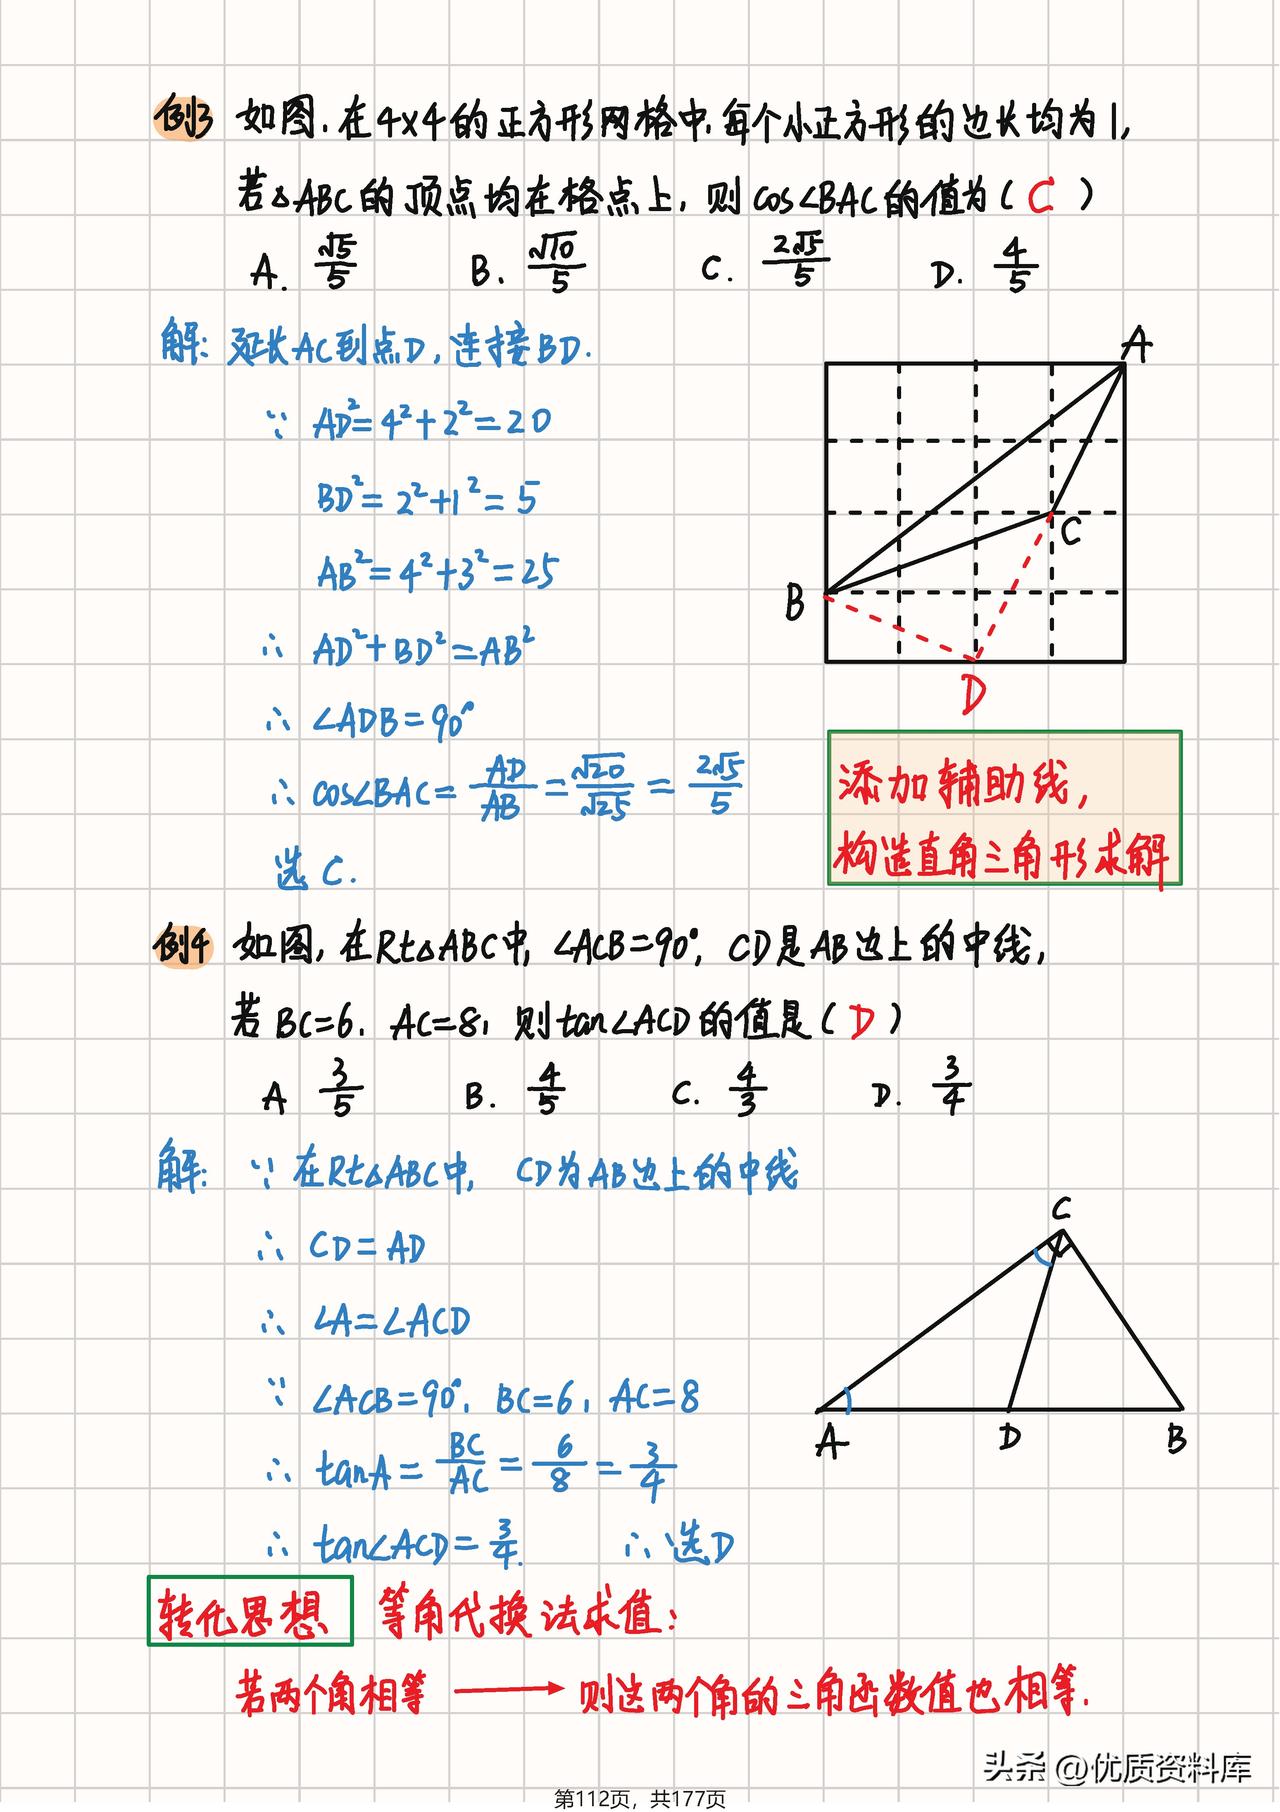 例3 如图,在4×4的正方形网格中,每个小正方形的边长均为1,
若△ABC的顶点均在格点上,则cos∠BAC的值为( C )
A. √5/5 B. √10/5 C. 2√5/5 D. 4/5
解: 延长AC到点D,连接BD.
∵ AD²=4²+2²=20
BD²=2²+1²=5
AB²=4²+3²=25
∴ AD²+BD²=AB²
∴ ∠ADB=90°
∴ cos∠BAC=AD/AB=√20/√25=2√5/5
选C.
A
B
C
D
添加辅助线,
构造直角三角形求解
例4 如图,在Rt△ABC中,∠ACB=90°,CD是AB边上的中线,
若BC=6,AC=8,则tan∠ACD的值是( D )
A 3/5 B. 4/5 C. 4/3 D. 3/4
解: ∵ 在Rt△ABC中, CD为AB边上的中线
∴ CD=AD
∴ ∠A=∠ACD
∵ ∠ACB=90°, BC=6, AC=8
∴ tanA=BC/AC=6/8=3/4
∴ tan∠ACD=3/4. ∴选D
C
A D B
转化思想 等角代换法求值:
若两个角相等 → 则这两个角的三角函数值也相等.
头条 @优质资料库
第112页,共177页